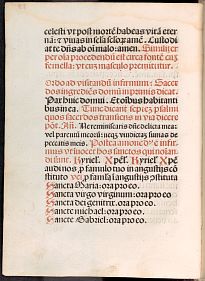 celesti vt post mortē habeas vitā eter
nā: ⁊ viuas in scl'a scl'orꝫ amē. Custodi
at te dn̄s ab oī malo: amen. Similiter
per oīa procedendū est circa fontē et
femella: vt circa masculo pretermittit.
Ordo ad visitandū infirmum: Sacer
dos ingrediēs domū in primis dicat.
Pax huic domui. Et oībus habitanti
bus in ea. Tunc dicant septē psalmi
quos sacerdos transiens in via dicere
pōt. Añ. Ne reminiscaris dn̄e delicta mea:
vel parentū meorū: neqꝫ vindictā sumas de
peccatis meis. Postea
sunt. Kyriel. Xpel. Kyriel. Xpe
audi nos. p famulo tuo in angustijs cō
stituto vel p famula in angustijs
Sancta Maria: ora pro eo.
Sancta virgo virginum: ora pro eo
Sancta dei genitrix. ora pro eo.
Sancte michael: ora pro eo
Sancte Gabriel: ora pro eo.